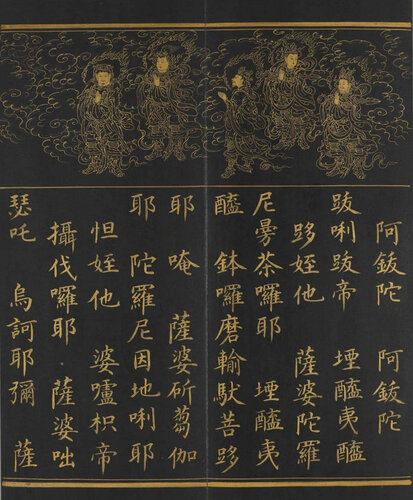 阿鈸陀 阿鈸陀
跋唎跋帝 堙醯夷醯
跢姪他 薩婆陀羅
尼曼荼囉耶 堙醯夷
醯 鉢囉磨輸馱菩跢
耶 唵 薩婆斫蒭伽
耶 陀羅尼因地唎耶
怛姪他 婆嚧枳帝
攝伐囉耶 薩婆咄
瑟吒 烏訶耶彌 薩